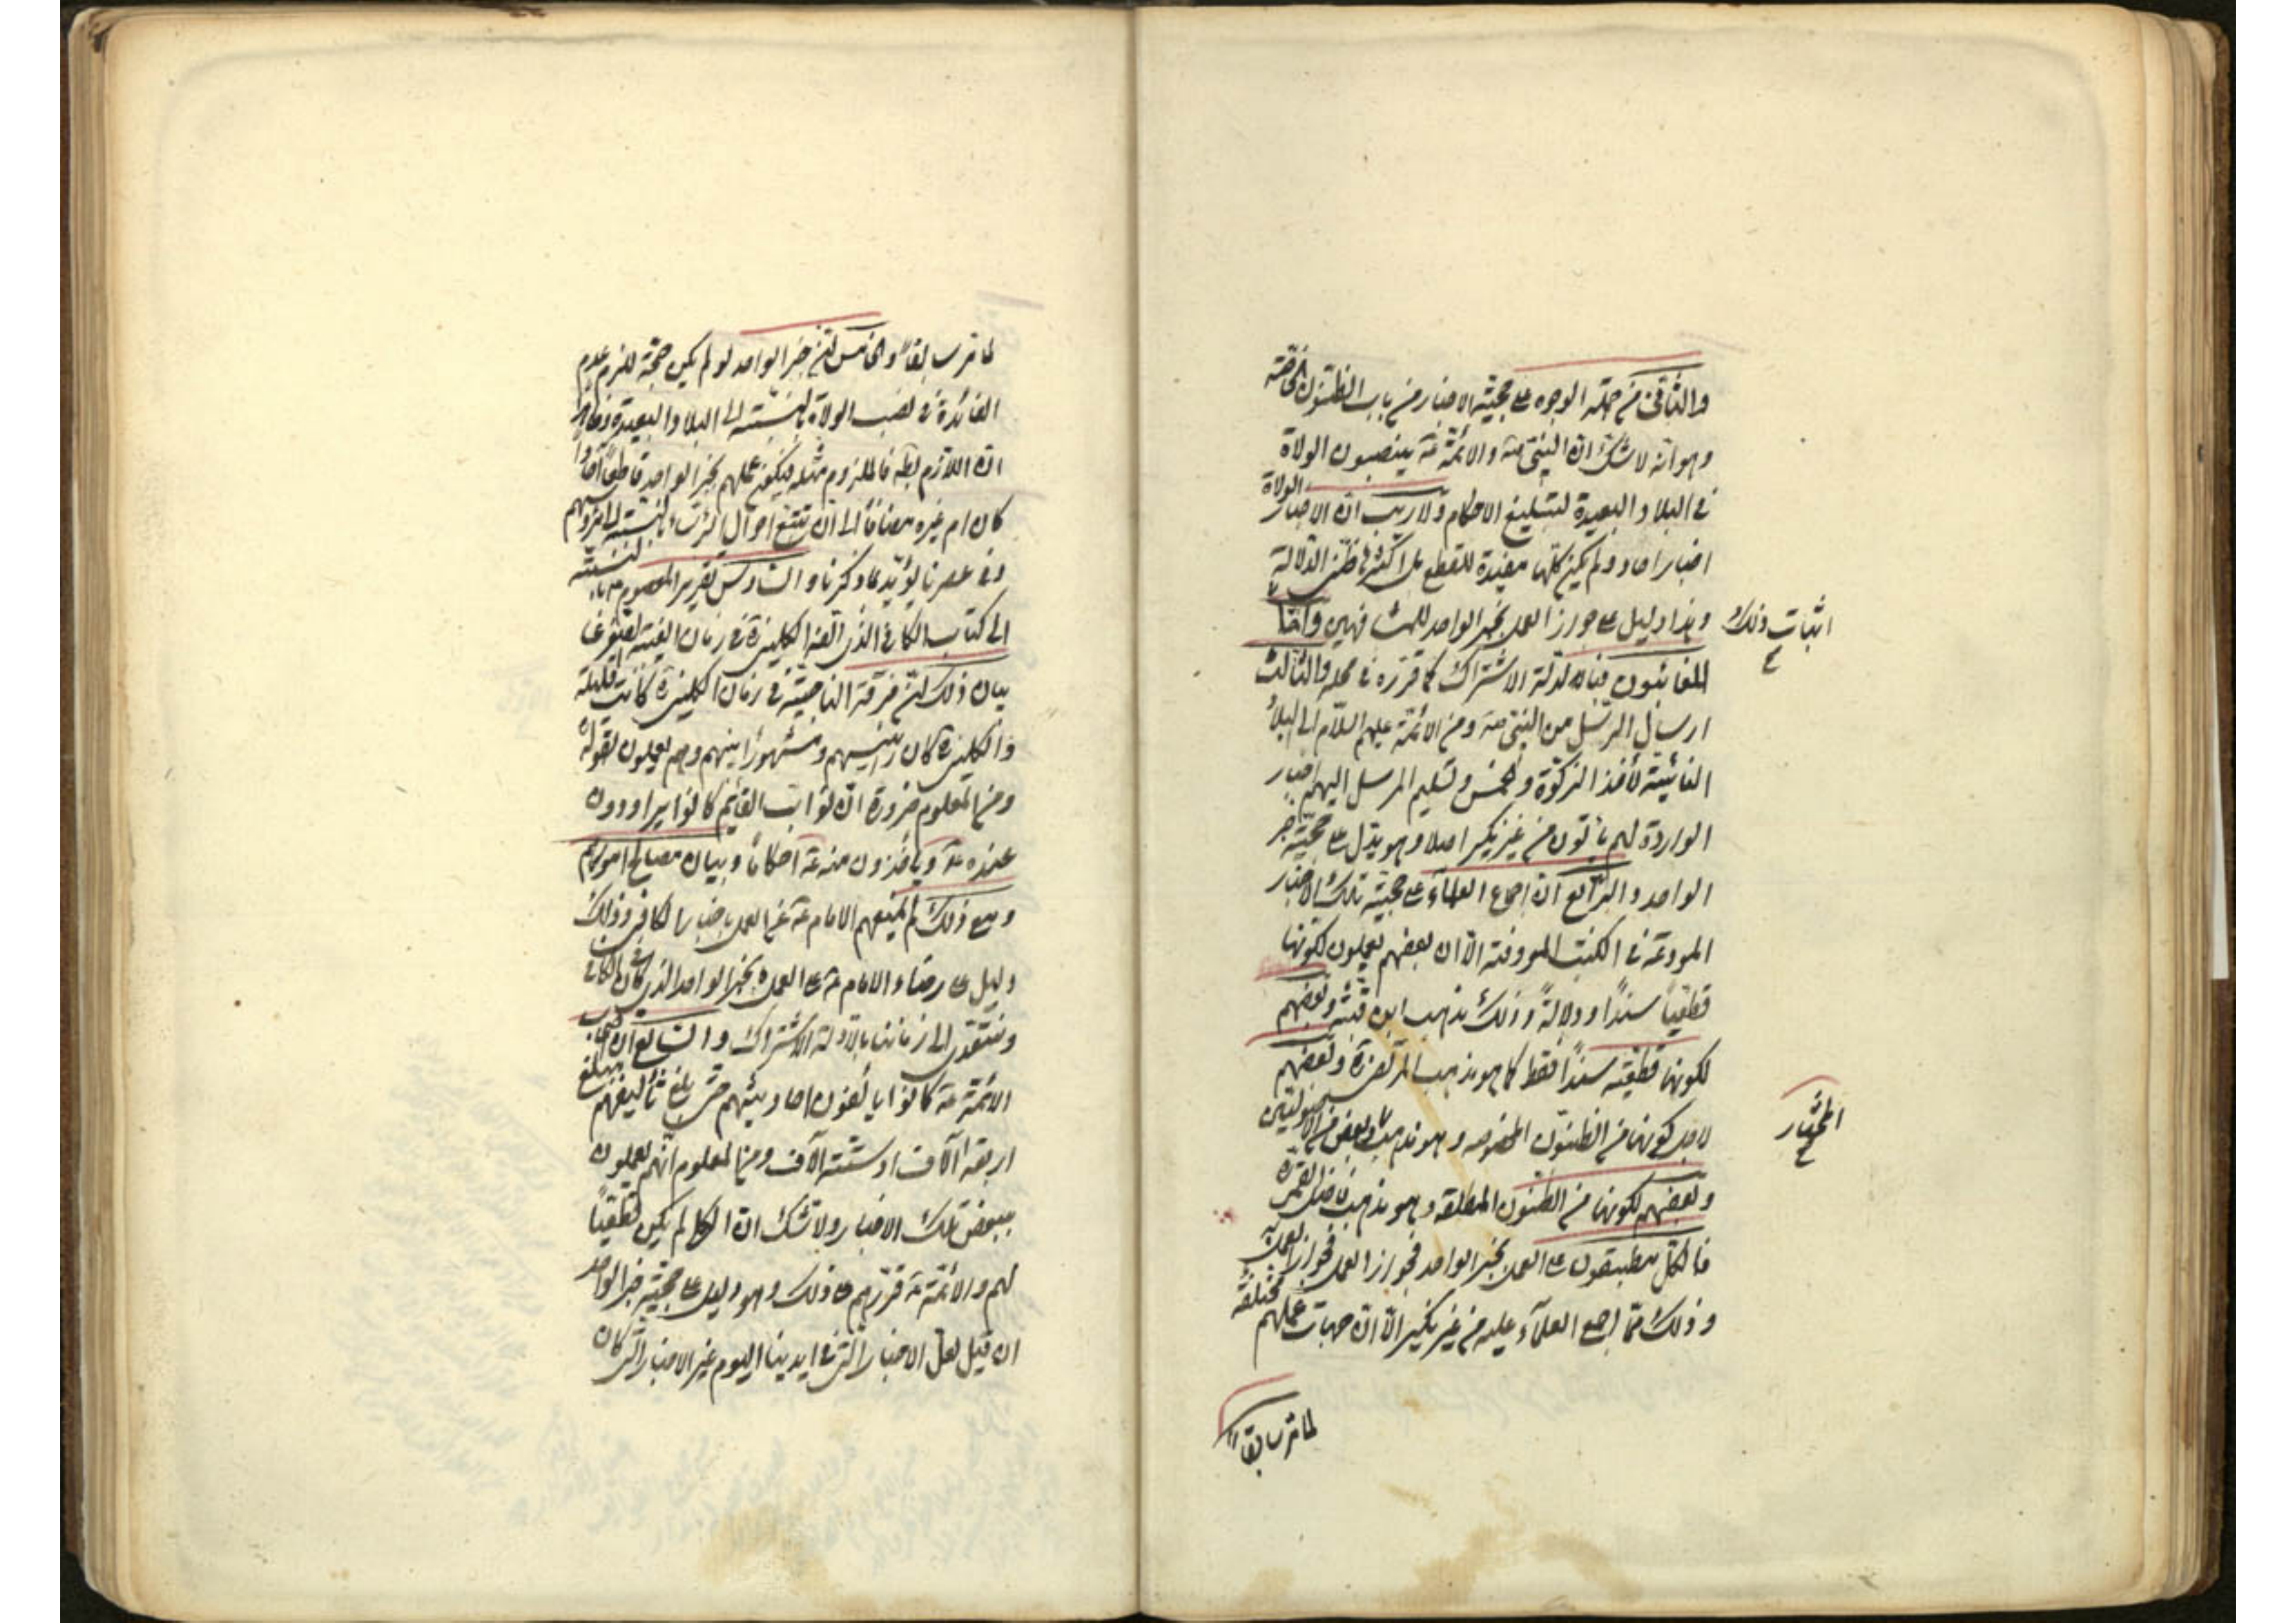 والثانی من جملة الوجوه علی حجیة الاخبار من باب الظنون الخاصة
وهو انه لا شک ان النبی ص والائمة ع ینصبون الولاة
فی البلاد البعیدة لتبلیغ الاحکام ولا ریب ان الاخبار الولاة
اخبار احاد ولم یکن کلها مفیدة للقطع بل اکثرها ظنی الدلالة
وهذا دلیل علی جواز العمل بخبر الواحد للمشافهین واما
اثبات ذلک
للغائبون فبادلة الاشتراک کما قرره فی محله والثالث
ارسال الرسل من النبی ص ومن الائمة علیهم السلام الی البلاد
الغائبة لأخذ الزکوة والخمس وتسلیم المرسل الیهم اخبار
الواردة لهم یأتون من غیر نکیر اصلا وهو یدل علی حجیة خبر
الواحد والرابع ان اجماع العلماء علی حجیة تلک الاخبار
المودعة فی الکتب المعروفة الا ان بعضهم یعملون لکونها
قطعیا سندا ودلالة وذلک مذهب ابن قبة وبعضهم
لکونها قطعیة سندا فقط کما هو مذهب المرتضی ره وبعضهم
لاجل کونها من الظنون المخصوصه وهو مذهب بعض من الاصولیین
المختار
وبعضهم لکونها من الظنون المطلقه وهو مذهب فاضل القمی ره
فالکل مطبقون علی العمل بخبر الواحد فجواز العمل
وذلک مما اجمع العلماء علیه من غیر نکیر الا ان جهات عملهم مختلفة
لما مر سابقا
لما مر سابقا والخامس ان خبر الواحد لو لم یکن حجة للزم عدم
الفائدة فی نصب الولاة بالنسبة الی البلاد البعیدة
ان اللازم بط فالملزوم مثله فیکون عملهم بخبر الواحد قاطعا
کان ام غیره مضافا الی ان تتبع احوال بالنسبة الی
وفی عصرنا یؤید ما ذکرنا والسادس تقریر المعصوم ع بالنسبة
الی کتاب الکافی الذی الفه الکلینی ره فی زمان الغیبة
بیان ذلک ان فرقة الناجیة فی زمان الکلینی ره کانت قلیلة
والکلینی ره کان رئیسهم ومشهورا بینهم وهم یعملون بقوله
ومن المعلوم ضرورة ان نواب القائم کانوا یراودون
عنده ع ویاخذون منه ع احکاما وبیان مصالح امورهم
ومع ذلک لم یمنعهم الامام ع عن العمل باخبار الکافی وذلک
دلیل علی رضاء الامام ع علی العمل بخبر الواحد الذی کان فی الکافی
ونتعدی الی زماننا بالادلة الاشتراک والسابع ان اصحاب
الائمة ع کانوا یألفون احادیثهم حتی بلغ تألیفهم
اربعة آلاف او ستة آلاف ومن المعلوم انهم یعملون
ببعض تلک الاخبار ولا شک ان الکل لم یکن قطعیا
لهم والائمة ع قررهم علی ذلک وهو دلیل علی حجیة خبر الواحد
ان قیل لعل الاخبار التی فی ایدینا الیوم غیر الاخبار التی کان